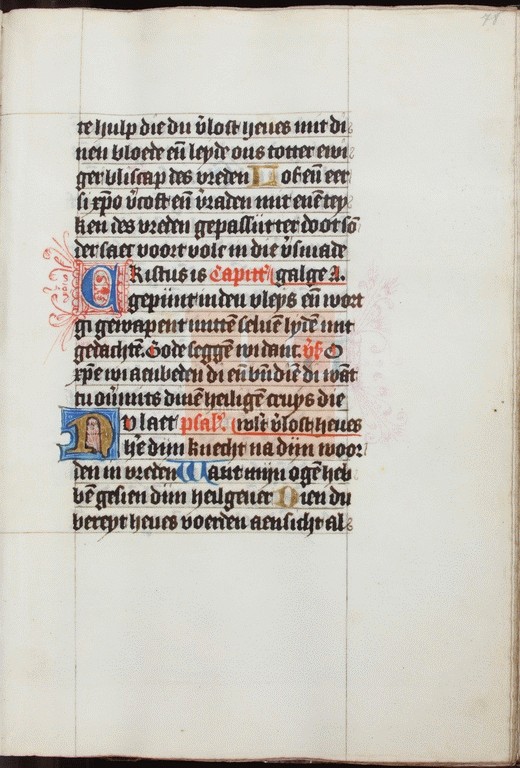 78
te hulp die du v̄lost heues mit di
nen bloede eñ leyde ons totter ewi
ger bliscap des vreden Lof eñ eer
si xp̄o v̄cost eñ v̄raden mit euē tey
ken des vreden gepassijt ter doot sō
der saet voort volc in die v̄smade
CRistus is Capittꝰ galge A.
gepijnt in den vleys eñ wort
gi gewapent mitten seluē lydē mit
gedachtē. Gode seggē wi danc. v̄s̄ O
xp̄e wi aenbeden di eñ bn̄dië di wāt
tu ou̅mits dinē heiligē cruys die
NV laet psalꝰ. werlt v̄lost heues
hē dijn knecht na dijn woor
den in vreden Want mijn ogē heb
bē gesien dijn heilgeuer Dien du
bereyt heues voerden aensicht al